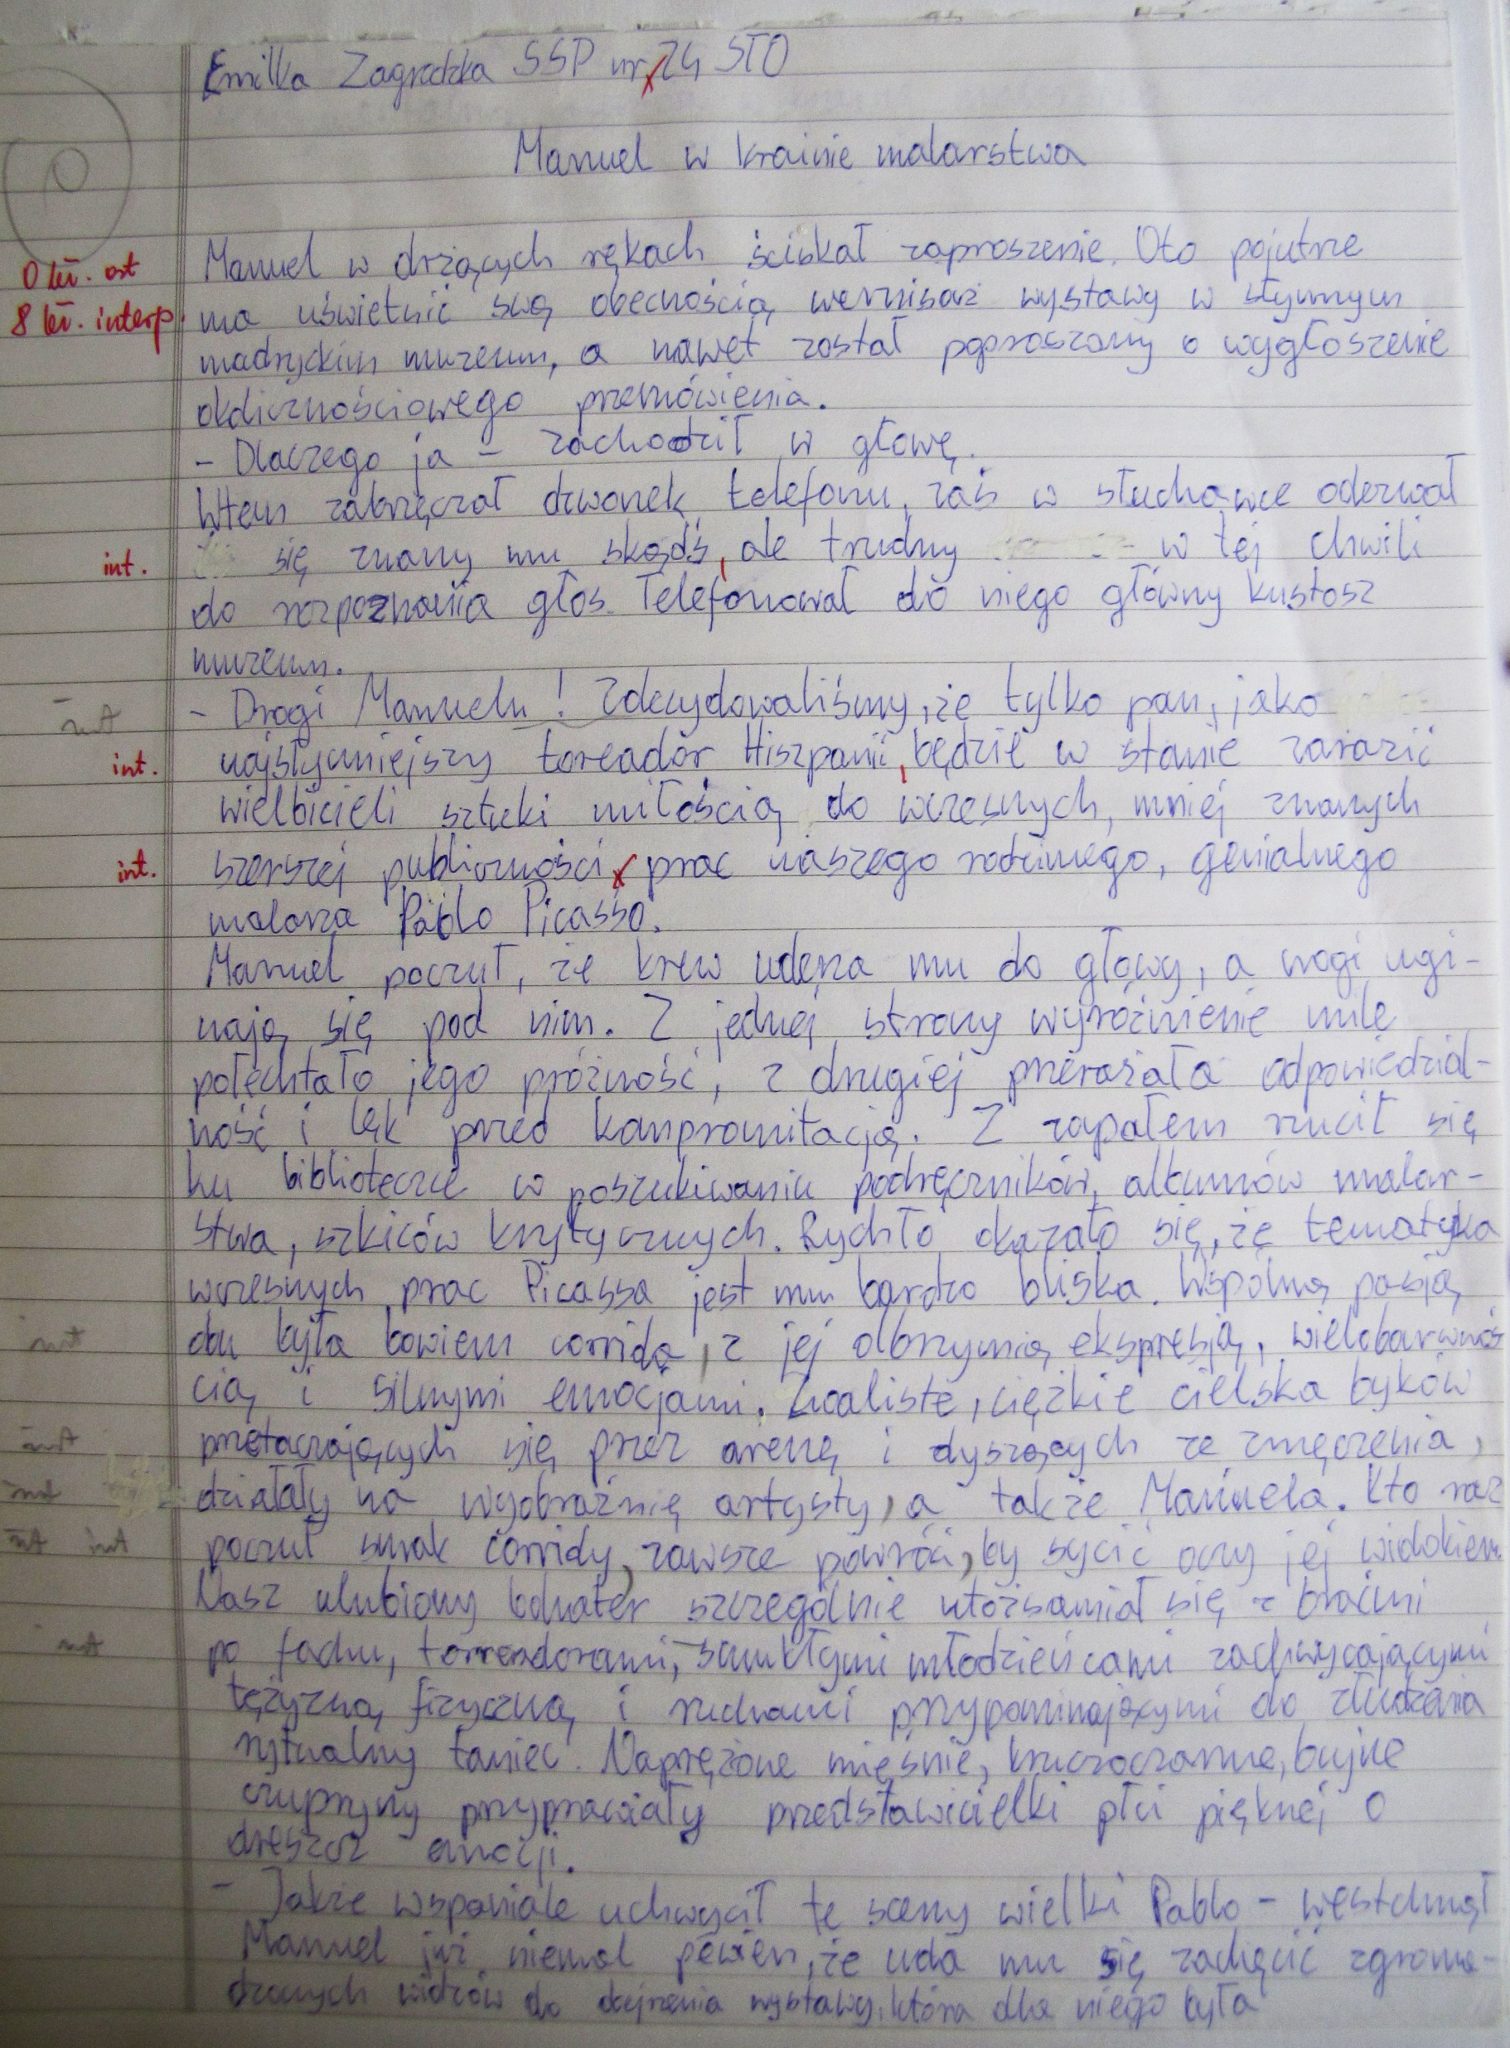 Emilka Zagrodzka SSP nr 24 STO
Manuel w krainie malarstwa
0 bł. ort
8 bł. interp.
Manuel w drżących rękach ściskał zaproszenie. Oto pojutrze
ma uświetnić swą obecnością wernisaż wystawy w słynnym
madryckim muzeum, a nawet został poproszony o wygłoszenie
okolicznościowego przemówienia.
- Dlaczego ja - zachodził w głowę.
Wtem zabrzęczał dzwonek telefonu, zaś w słuchawce oderwał
int. się znany mu skądś, ale trudny w tej chwili
do rozpoznania głos. Telefonował do niego główny kustosz
muzeum.
int - Drogi Manuelu! Zdecydowaliśmy, że tylko pan, jako
int. najsłynniejszy toreador Hiszpanii, będzie w stanie zarazić
wielbicieli sztuki miłością do wczesnych, mniej znanych
int. szerszej publiczności, prac naszego rodzimego, genialnego
malarza Pablo Picasso.
Manuel poczuł, że krew uderza mu do głowy, a nogi ugi-
nają się pod nim. Z jednej strony wyróżnienie mile
połechtało jego próżność, z drugiej przerażała odpowiedzial-
ność i lęk przed kompromitacją. Z zapałem rzucił się
ku biblioteczce w poszukiwaniu podręczników, albumów malar-
stwa, szkiców krytycznych. Rychło okazało się, że tematyka
wczesnych prac Picassa jest mu bardzo bliska. Wspólną pasją
int obu była bowiem corrida, z jej olbrzymią ekspresją, wielobarwnoś
cią i silnymi emocjami. Zwaliste, ciężkie cielska byków
int przetaczających się przez arenę i dyszących ze zmęczenia,
int działały na wyobraźnię artysty, a także Manuela. Kto raz
int int poczuł smak corridy, zawsze powróci, by sycić oczy jej widokiem.
Nasz ulubiony bohater szczególnie utożsamiał się z braćmi
int po fachu, torreadorami, smukłymi młodzieńcami zachwycającymi
tężyzną fizyczną i ruchami przypominającymi do złudzenia
rytualny taniec. Naprężone mięśnie, kruczoczarne, bujne
czupryny przyprawiały przedstawicielki płci pięknej o
dreszcz emocji.
- Jakże wspaniale uchwycił te sceny wielki Pablo - westchnął
Manuel już niemal pewien, że uda mu się zachęcić zgroma-
dzonych widzów do obejrzenia wystawy, która dla niego była